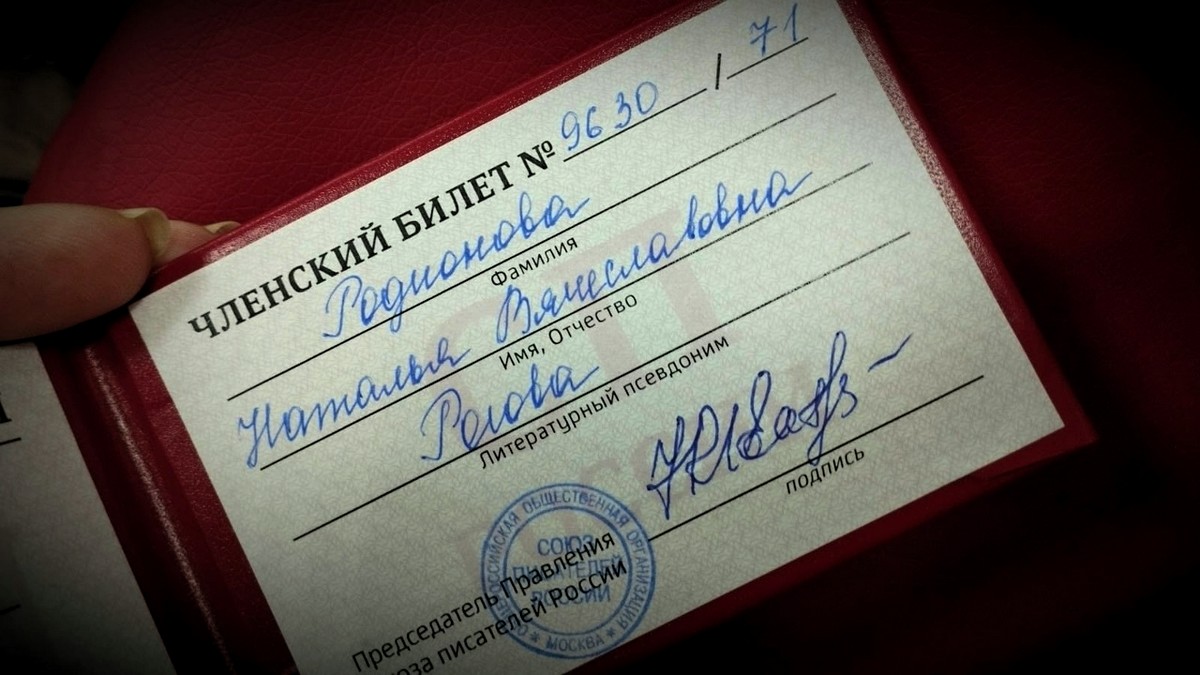 ЧЛЕНСКИЙ БИЛЕТ № 9630 / 71
Родионова
Фамилия
Наталья Вячеславовна
Имя, Отчество
Рогова
Литературный псевдоним
подпись
Председатель Правления
Союза писателей России
ОБЩЕРОССИЙСКАЯ ОБЩЕСТВЕННАЯ ОРГАНИЗАЦИЯ
СОЮЗ
ПИСАТЕЛЕЙ
РОССИИ
* МОСКВА *